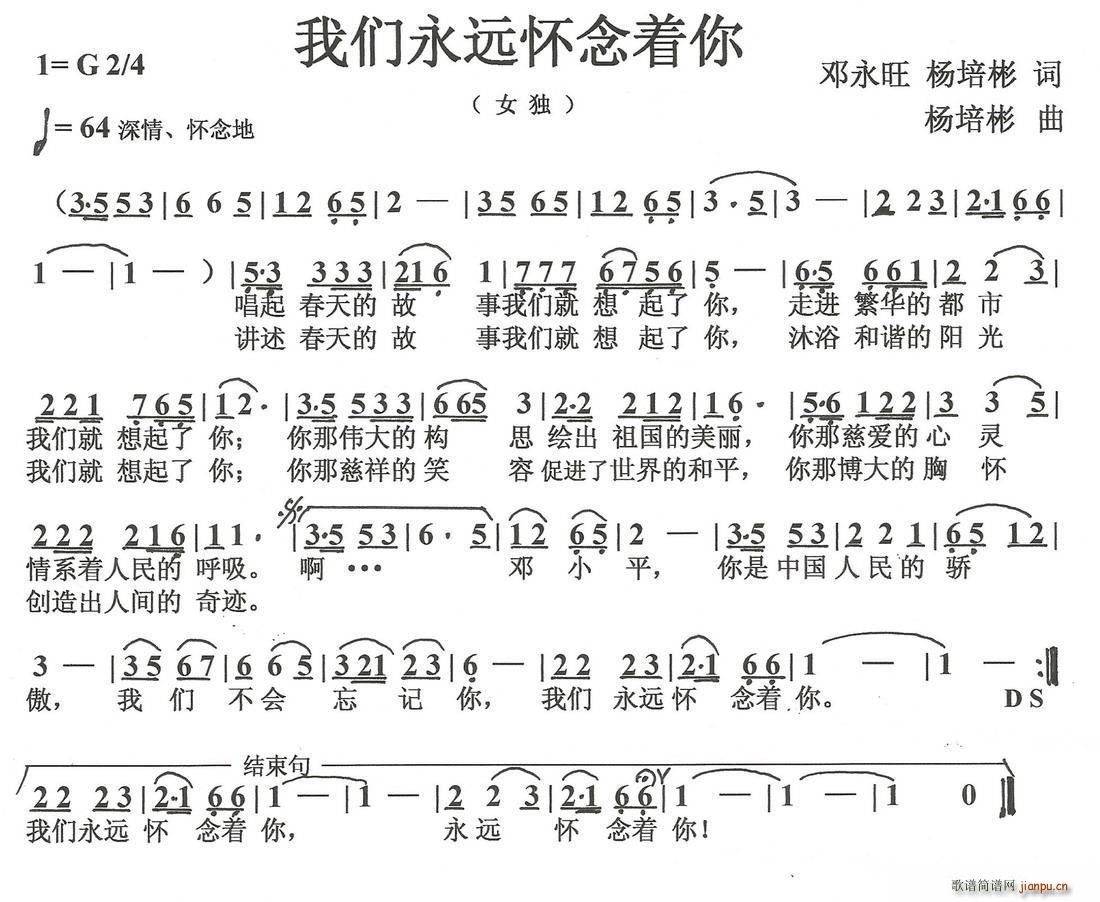 我们永远怀念着你
1= G 2/4
邓永旺 杨培彬 词
（ 女 独 ）
杨培彬 曲
♩= 64 深情、怀念地
（3·5 5 3 | 6 6 5 | 1 2 6 5 | 2 — | 3 5 6 5 | 1 2 6 5 | 3 · 5 | 3 — | 2 2 3 | 2·1 6 6 |
1 — | 1 — ）| 5·3 3 3 3 | 2 1 6 1 | 7 7 7 6 7 5 6 | 5 — | 6·5 6 6 1 | 2 2 3 |
唱起 春天的 故 事我们就 想 起了 你， 走进 繁华的 都 市
讲述 春天的 故 事我们就 想 起了 你， 沐浴 和谐的 阳 光
2 2 1 7 6 5 | 1 2 · | 3·5 5 3 3 | 6 6 5 3 | 2·2 2 1 2 | 1 6 · | 5·6 1 2 2 | 3 3 5 |
我们就 想起了 你； 你那伟大的 构 思 绘出 祖国的美丽， 你那慈爱的 心 灵
我们就 想起了 你； 你那慈祥的 笑 容 促进了世界的和平， 你那博大的 胸 怀
2 2 2 2 1 6 | 1 1 · | 3·5 5 3 | 6 · 5 | 1 2 6 5 | 2 — | 3·5 5 3 | 2 2 1 | 6 5 1 2 |
情系着人民的 呼吸。 啊 ••• 邓 小 平， 你是 中国 人 民 的 骄
创造出人间的 奇迹。
3 — | 3 5 6 7 | 6 6 5 | 3 2 1 2 3 | 6 — | 2 2 2 3 | 2·1 6 6 | 1 — | 1 — :‖
傲， 我 们 不 会 忘 记 你， 我们 永远 怀 念着 你。 D S
结束句
2 2 2 3 | 2·1 6 6 | 1 — | 1 — | 2 2 3 | 2·1 6 6 | 1 — | 1 — | 1 0 ‖
我们永远 怀 念着 你， 永 远 怀 念着 你！
歌谱简谱网 jianpu.cn